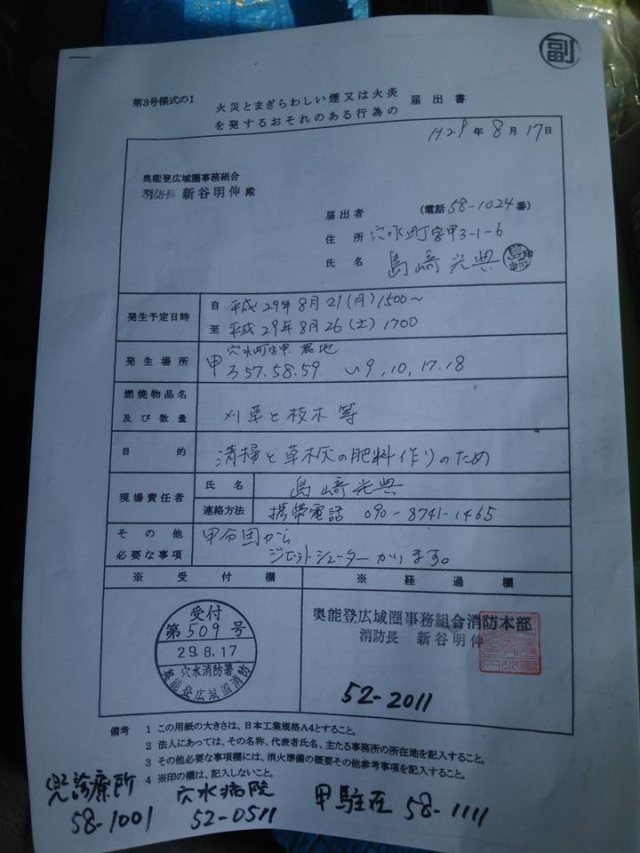 副
第3号様式の1
火災とまぎらわしい煙又は火炎
を発するおそれのある行為の 届出書
H29年8月17日
奥能登広域圏事務組合
消防長 新谷明伸 殿
届出者 (電話58-1024番)
住所 穴水町字甲3-1-6
氏名 島崎光典
発生予定日時
自 平成29年8月21(月)1500~
至 平成29年8月26(土)1700
発生場所
穴水町字甲
甲ろ57.58.59 い9,10,17.18
燃焼物品名
及び数量
刈草と枝木等
目的
清掃と草木灰の肥料作りのため
現場責任者
氏名 島崎光典
連絡方法 携帯電話 090-8741-1465
その他
必要な事項
甲分団から
ジェットシューターかります。
※受付欄
※経過欄
受付
第509号
29.8.17
穴水消防署
奥能登広域圏消防
奥能登広域圏事務組合消防本部
消防長 新谷明伸
52-2011
備考 1 この用紙の大きさは、日本工業規格A4とすること。
2 法人にあっては、その名称、代表者氏名、主たる事務所の所在地を記入すること。
3 その他必要な事項欄には、消火準備の概要その他参考事項を記入すること。
4 ※印の欄は、記入しないこと。
診療所 穴水病院 甲駐在 58-1111
58-1001 52-0511